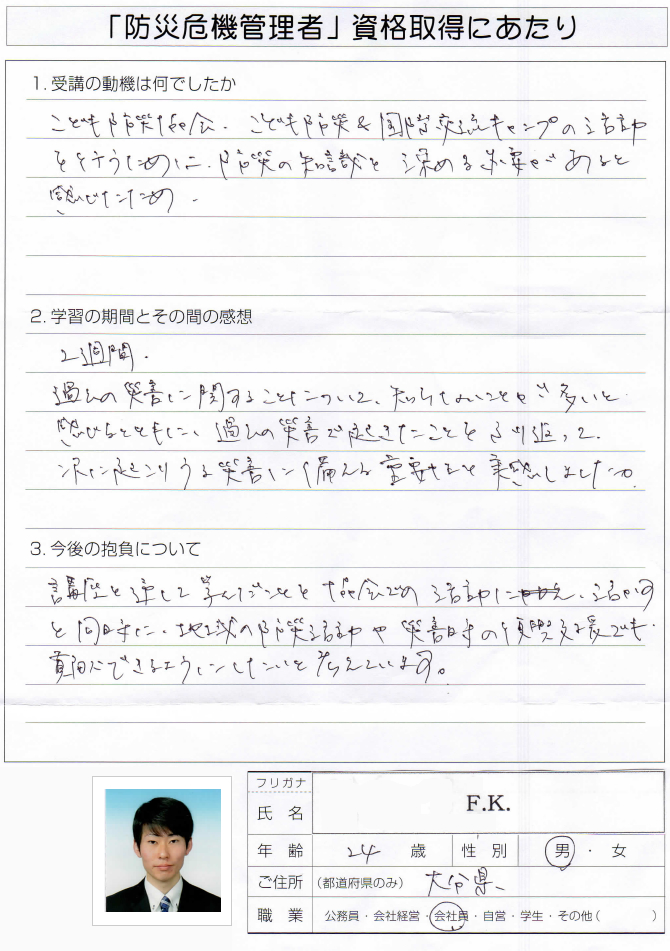 「防災危機管理者」資格取得にあたり
1. 受講の動機は何でしたか
こども防災協会.こども防災&国際交流キャンプの活動
を行うために、防災の知識を深める必要があると
感じたため.
2. 学習の期間とその間の感想
2週間.
過去の災害に関することについて、知らないことが多いと
感じるとともに、過去の災害で起きたことをふり返って、
次に起こりうる災害に備える重要性を実感しました。
3. 今後の抱負について
講座を通して学んだことを協会での活動に、活かす
と同時に、地域の防災活動や災害時の復興支援でも
貢献できるようにしたいと考えています。
フリガナ
氏 名 F.K.
年 齢 24 歳 性 別 男 ・ 女
ご住所 (都道府県のみ) 大分県、
職 業 公務員・会社経営・会社員・自営・学生・その他( )